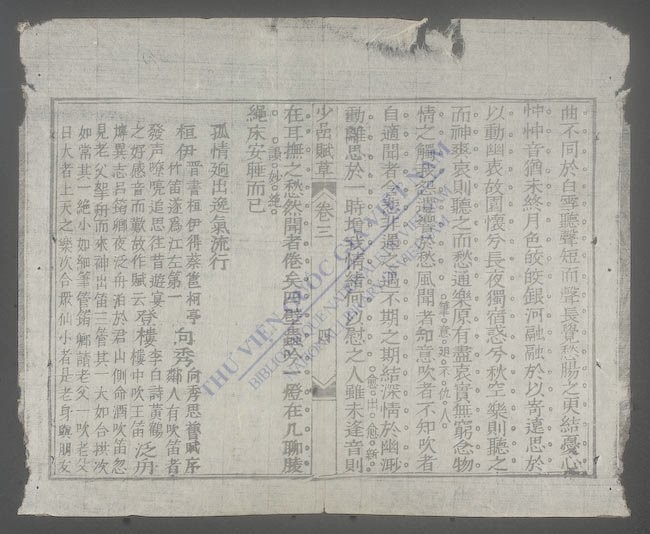 曲不同於白雪聽聲短而聲長覺愁腸之更結憂心
忡忡音猶未終月色皎皎銀河融融於以寄遠思於
以動幽衷故園懷兮長夜獨宿惑兮秋空樂則聽之
而神爽哀則聽之而愁通樂原有盡哀實無窮念物
情之觸我怨遺響於愁風聞者知意吹者不知吹者
自適聞者今悲非遇之遇不期之期結深情於幽澗
動離思於一時增我情緒何以慰之人雖未逢音則
愈出愈新
少嵒賦草 卷三 四
在耳撫之愁然聞者倦矣四壁蟲吟一燈在几聊勝
繩床安睡而已
孤情迥出逸氣流行
桓伊 晋書桓伊得蔡邕柯亭
竹笛遂爲江左第一
向秀 向秀思舊賦序
鄰人有吹笛者
發声嘹喨追思往昔遊宴
之好感音而歎故作賦云
登樓 李白詩黃鶴
樓中吹玉笛
泛舟
博異志呂筠卿夜泛舟於君山側命酒吹笛忽
見老父拏舟而來袖出笛三管其一大如合拱次
如常其一絶小如細筆管筠卿請老父一吹老父
曰大者上天之樂次合眾仙小者是老身與朋友
THƯ VIỆN QUỐC GIA VIỆT NAM